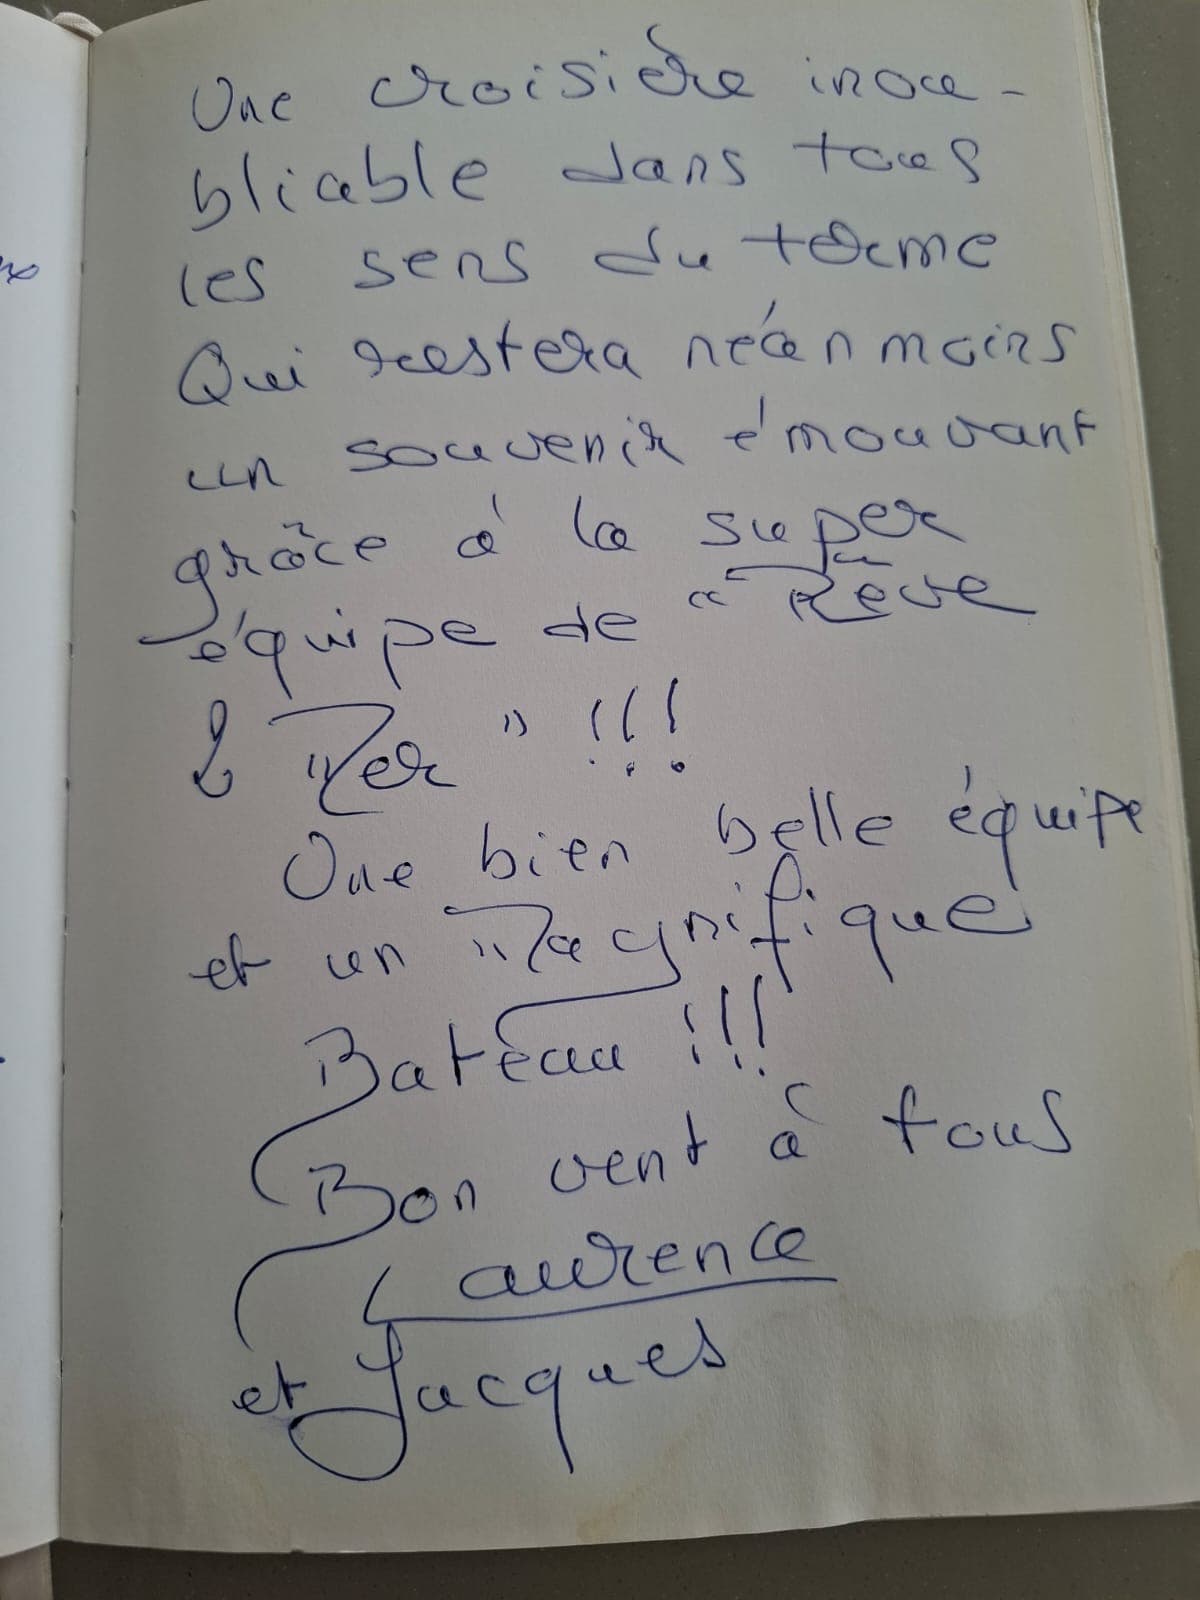 Une croisière inou-
bliable dans tous
les sens du terme
Qui restera néanmoins
un souvenir émouvant
grâce à la super
équipe de "Rêve
2 Mer" !!!
Une bien belle équipe
et un Magnifique
Bateau !!!
Bon vent à tous
Laurence
et Jacques